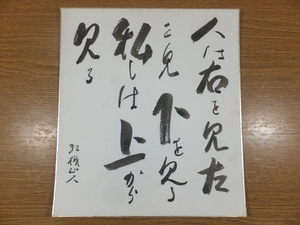 人は右を見左
を見下を見る
私しは上から
見る